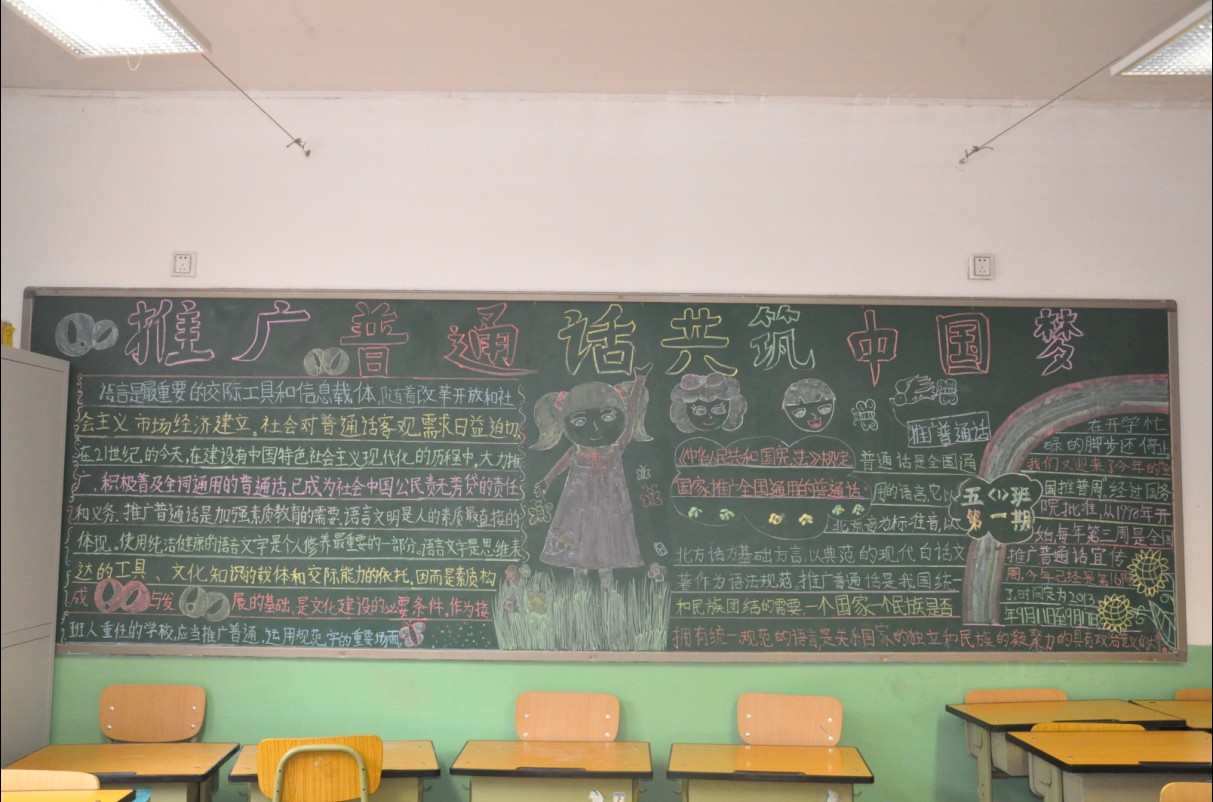 推广普通话共筑中国梦
语言是最重要的交际工具和信息载体,随着改革开放和社
会主义市场经济建立。社会对普通话客观需求日益迫切
在21世纪的今天,在建设有中国特色社会主义现代化的历程中,大力推
广、积极普及全词通用的普通话,已成为社会中国公民责无旁贷的责任
和义务。推广普通话是加强素质教育的需要,语言文明是人的素质最直接的
体现。使用纯洁健康的语言文字是个人修养最重要的一部分。语言文字是思维表
达的工具、文化知识的载体和交际能力的依托,因而是素质构
成与发展的基础,是文化建设的必要条件,作为接
班人重任的学校,应当推广普通话用规范字的重要场西
《中华人民共和国宪法》规定
国家推广全国通用的普通话。
推广普通话
普通话是全国通
用的语言,它以
北京音为标准音,以
北方话为基础方言,以典范的现代白话文
著作为语法规范。推广普通话是我国统一
和民族团结的需要。一个国家一个民族是否
拥有统一规范的语言,是关系国家的独立和民族的凝聚力的具有政治意义的
五(1)班
第一期
在开学忙
碌的脚步还停止
我们又迎来了今年的全
国推普周,经过国务
院批准,从1998年开
始每年第三周是全国
推广普通话宣传
周,今年已经是第16届
了,时间定为2013
年9月11日至9月17日